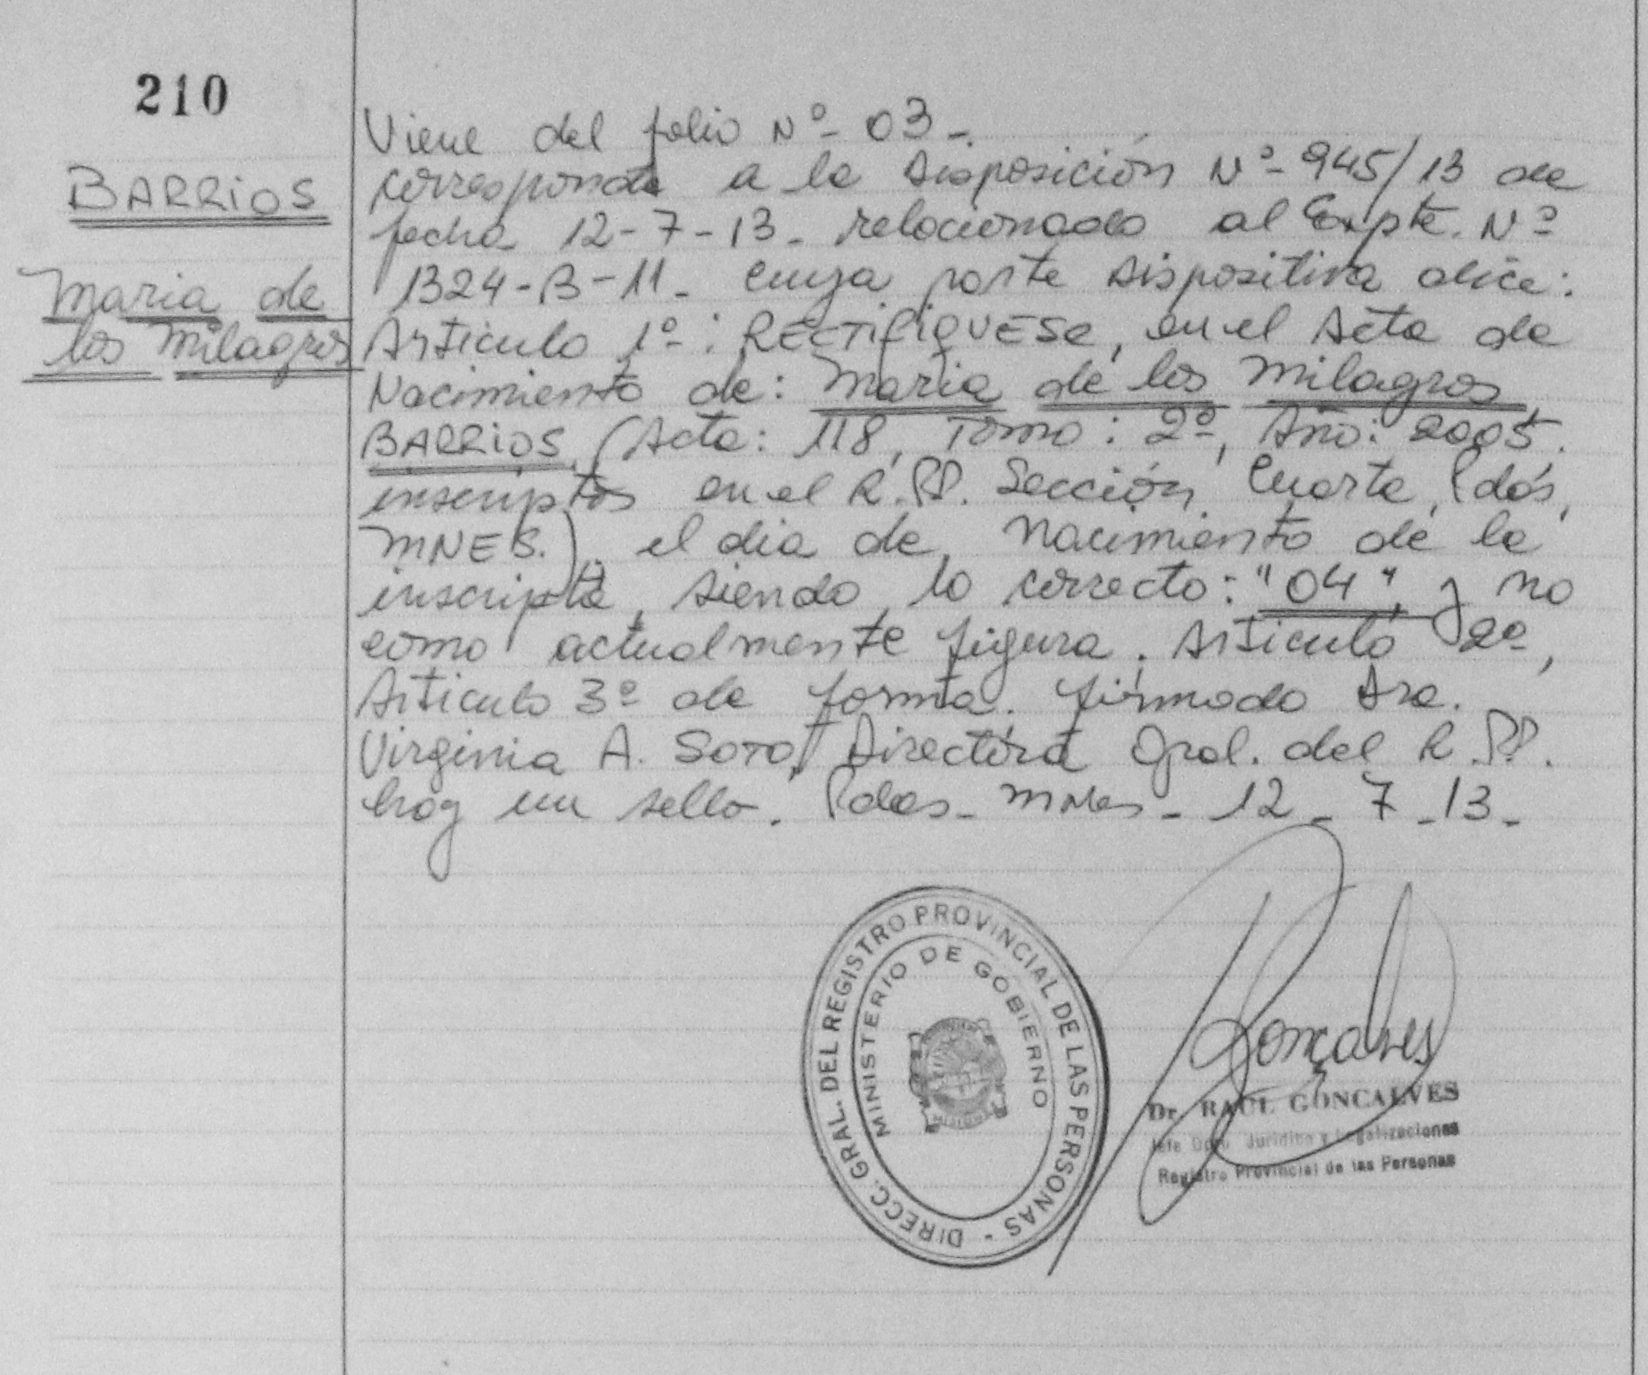 210
BARRIOS
Maria de
los Milagros
Viene del folio Nº- 03-.
corresponde a la Disposición Nº- 945/13 de
fecha 12-7-13- relacionado al Expte. Nº
1324-B-11- cuya parte dispositiva dice:
Articulo 1º-: RECTIFIQUESE, en el Acta de
Nacimiento de: Maria de los Milagros
BARRIOS (Acta: 118, Tomo: 2º, Año: 2005.
inscriptos en el R.PP. Sección Cuarta, Pdos,
MNES.), el dia de nacimiento de la
inscripta, siendo lo correcto: "04", y no
como actualmente figura. Articulo 2º,
Articulo 3º de forma. firmado Dra.
Virginia A. Soto, Directora Gral. del R.PP.
hay un sello. Pdas- Mnes- 12-7-13-
DIRECC. GRAL. DEL REGISTRO PROVINCIAL DE LAS PERSONAS -
MINISTERIO DE GOBIERNO
MISIONES
Gonçalves
Dr. RAUL GONCALVES
Jefe Dpto. Jurídico y Legalizaciones
Registro Provincial de las Personas